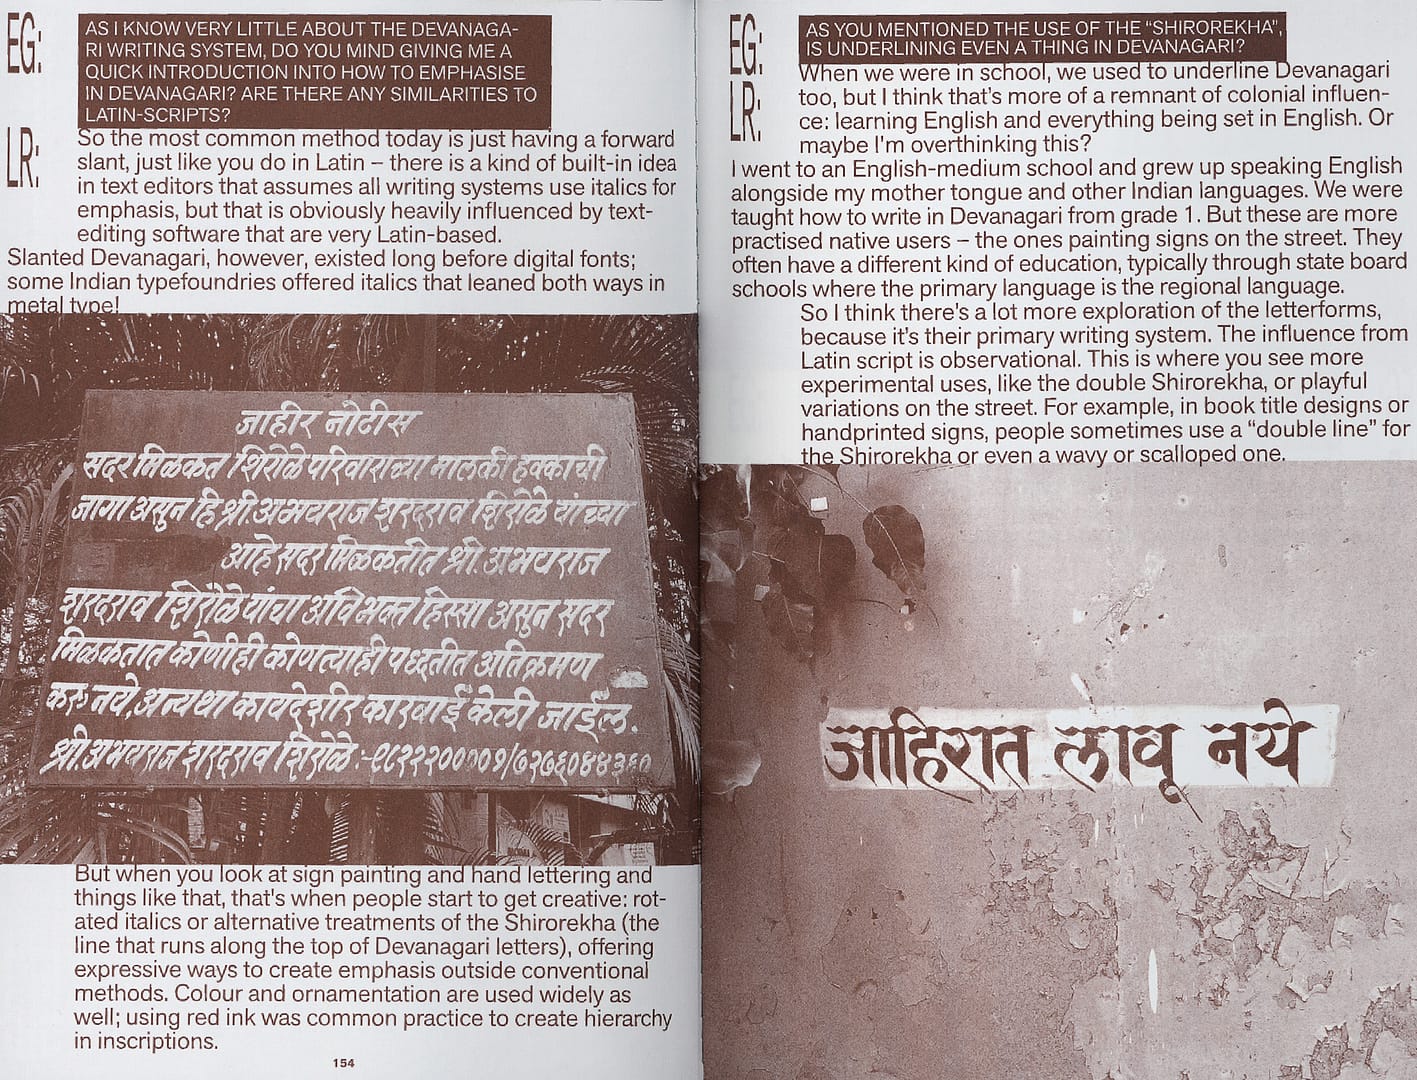 EG:
AS I KNOW VERY LITTLE ABOUT THE DEVANAGA-
RI WRITING SYSTEM, DO YOU MIND GIVING ME A
QUICK INTRODUCTION INTO HOW TO EMPHASISE
IN DEVANAGARI? ARE THERE ANY SIMILARITIES TO
LATIN-SCRIPTS?
LR:
So the most common method today is just having a forward
slant, just like you do in Latin – there is a kind of built-in idea
in text editors that assumes all writing systems use italics for
emphasis, but that is obviously heavily influenced by text-
editing software that are very Latin-based.
Slanted Devanagari, however, existed long before digital fonts;
some Indian typefoundries offered italics that leaned both ways in
metal type!
जाहीर नोटीस
सदर मिळकत शिरोळे परिवाराच्या मालकी हक्काची
जागा असुन हि श्री.अभयराज शरदराव शिरोळे यांच्या
आहे सदर मिळकतीत श्री. अभयराज
शरदराव शिरोळे यांचा अविभक्त हिस्सा असुन सदर
मिळकतीत कोणीही कोणत्याही पध्दतीत अतिक्रमण
करु नये, अन्यथा कायदेशीर कारवाई केली जाईल.
श्री.अभयराज शरदराव शिरोळे:-९८२२२००००१/७२७६०४४३६०
But when you look at sign painting and hand lettering and
things like that, that's when people start to get creative: rot-
ated italics or alternative treatments of the Shirorekha (the
line that runs along the top of Devanagari letters), offering
expressive ways to create emphasis outside conventional
methods. Colour and ornamentation are used widely as
well; using red ink was common practice to create hierarchy
in inscriptions.
154
EG:
AS YOU MENTIONED THE USE OF THE “SHIROREKHA”,
IS UNDERLINING EVEN A THING IN DEVANAGARI?
LR:
When we were in school, we used to underline Devanagari
too, but I think that's more of a remnant of colonial influen-
ce: learning English and everything being set in English. Or
maybe I'm overthinking this?
I went to an English-medium school and grew up speaking English
alongside my mother tongue and other Indian languages. We were
taught how to write in Devanagari from grade 1. But these are more
practised native users – the ones painting signs on the street. They
often have a different kind of education, typically through state board
schools where the primary language is the regional language.
So I think there's a lot more exploration of the letterforms,
because it's their primary writing system. The influence from
Latin script is observational. This is where you see more
experimental uses, like the double Shirorekha, or playful
variations on the street. For example, in book title designs or
handprinted signs, people sometimes use a “double line” for
the Shirorekha or even a wavy or scalloped one.
जाहिरात लावू नये